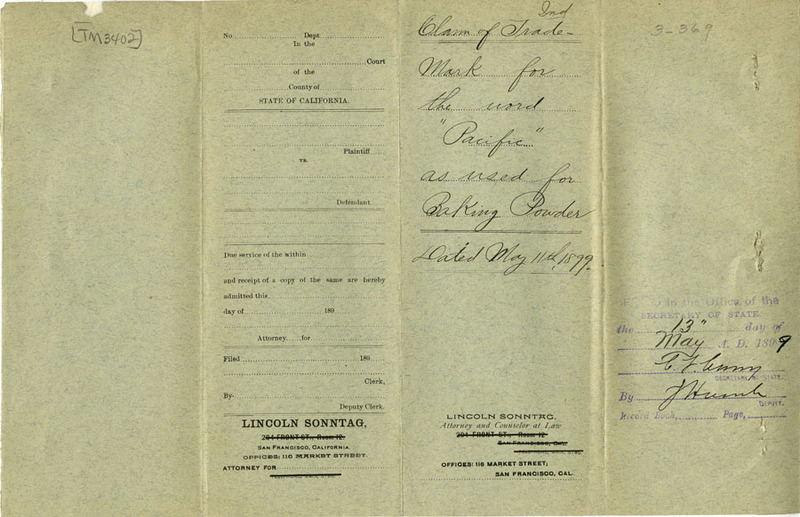 [TM3402]
No Dept.
In the
Court
of the
County of
STATE OF CALIFORNIA.
Plaintiff
vs.
Defendant
Due service of the within
and receipt of a copy of the same are hereby
admitted this
day of 189
Attorney for
Filed 189
Clerk,
By
Deputy Clerk.
LINCOLN SONNTAG,
204 FRONT ST., Room 12.
SAN FRANCISCO, CALIFORNIA.
OFFICES: 116 MARKET STREET.
ATTORNEY FOR
Ind
Claim of Trade-
Mark for
the word
"Pacific"
as used for
Baking Powder
Dated May 11th, 1899.
LINCOLN SONNTAG,
Attorney and Counselor at Law
204 FRONT ST., Room 12,
SAN FRANCISCO, CAL.
OFFICES: 116 MARKET STREET;
SAN FRANCISCO, CAL.
3-369
in the Office of the
SECRETARY OF STATE
the 13" day of
May A. D. 1899
SECRETARY OF STATE.
By
DEPUTY.
Record Book, Page,